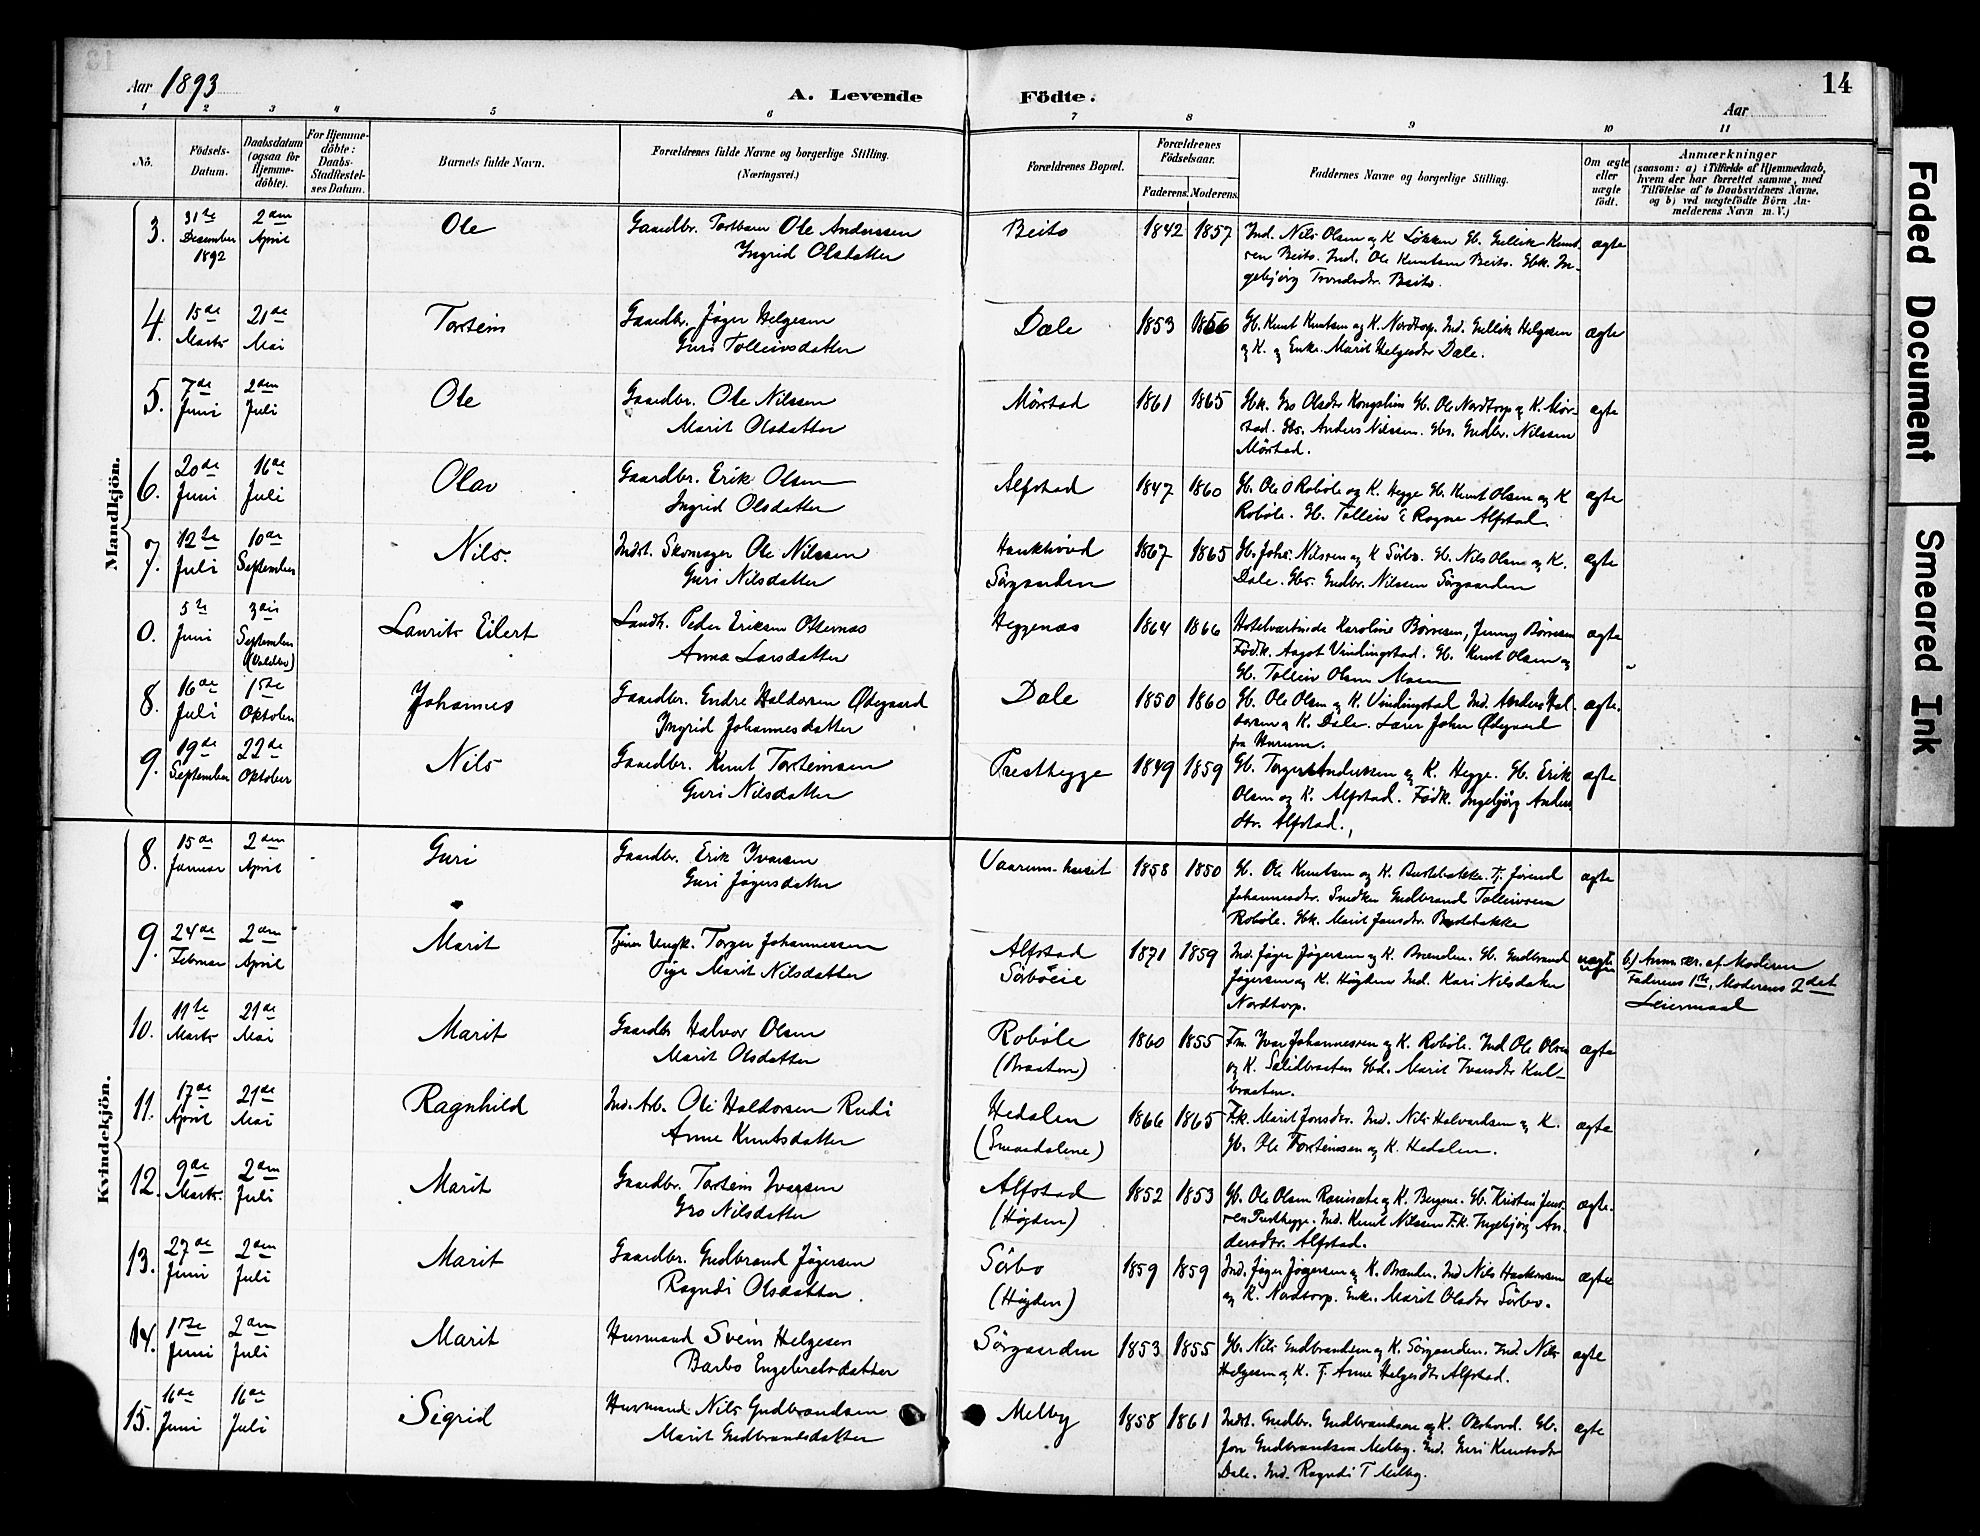 Aar 1893
A. Levende
Födte.
14
Aar
1 2 3 4 5 6 7 8 9 10 11
No.
Födsels-
Datum.
Daabsdatum
(ogsaa for
Hjemme-
döbte).
For Hjemme-
döbte:
Daabs-
Stadfæstel-
ses Datum.
Barnets fulde Navn.
Forældrenes fulde Navne og borgerlige Stilling.
(Næringsvei.)
Forældrenes Bopæl.
Forældrenes
Födselsaar.
Faderens. Moderens.
Faddernes Navne og borgerlige Stilling.
Om ægte
eller
uægte
født.
Anmærkninger
(saasom: a) i Tilfælde af Hjemmedaab,
hvem der har forrettet samme, med
Tilföielse af to Daabsvidners Navne,
og b) ved uægtefödte Börn An-
melderens Navn m. V.)
Mandkjön.
3.
31te
Desember
1892
2den
April
Ole
Gaardbr. Torbern Ole Anderssen
Ingrid Olsdatter
Beito
1842 1857
Ind. Nils Olsen og K Løkken Gb. Gullik Knut-
sen Beito. Ind. Ole Knutsen Beito. Gbk. In-
gebjørg Trondsdtr. Beito.
ægte
4.
15de
Marts
21de
Mai
Torstein
Gaardbr. Jøger Helgesen
Guri Tolleivsdatter
Dale
1853 1856
Gb. Knut Knutsen og K. Nordtorp. Ind. Gullik Helgesen
og K. og Enke. Marit Helgesdtr Dale.
ægte
5.
7de
Juni
2den
Juli
Ole
Gaardbr. Ole Nilssen
Marit Olsdatter
Mørstad
1861 1865
Gbk. Gro Olsdtr Kongslien Gb. Ole Nordtorp og K. Mør-
stad. Gbs. Anders Nilssen. Gbs. Gudbr. Nilssen
Mørstad.
ægte
6.
20de
Juni
16de
Juli
Olav
Gaardbr. Erik Olsen
Ingrid Olsdatter
Alfstad
1847 1860
Gb. Ole O Robøle og K. Hegge Gb. Knut Olsen og K
Robøle. Gb. Tolleiv E Ragne Alfstad.
ægte
7.
12te
Juli
10de
September
Nils.
Indst. Skomager Ole Nilssen
Guri Nilsdatter
Haukhøvd
Sørgaarden
1867 1865
Gb. Johs. Nilssen og K Sørbo. Gb. Nils Olsen og K.
Dale. Gbs. Gudbr. Nilssen Sørgaarden
ægte
0.
5te
Juni
3die
September
Laurits Eilert
Landh. Peder Eriksen Otternæs
Anna Larsdatter
Heggenæs
1864 1866
Hotelværtinde Karoline Børresen, Jenny Børresen
Fødk. Aagot Vindingstad. Gb. Knut Olsen og
Gb. Tolleiv Olsen Moen
ægte
8.
16de
Juli
15de
Oktober
Johannes
Gaardbr. Endre Haldorsen Ødegaard
Ingrid Johannesdatter
Dale
1850 1860
Gb. Ole Olsen og K. Vindingstad Ind. Anders Hal-
dorsen og K. Dale. Lærer John Ødegaard
fra Hurum.
ægte.
9.
19de
September
22de
Oktober
Nils
Gaardbr. Knut Torsteinsen
Guri Nilsdatter
Presthegge
1849 1859
Gb. Torger Anderssen og K. Hegge. Gb. Erik
Olsen og K. Alfstad. Fødk. Ingebjørg Anders
dtr. Alfstad.
ægte
Kvindekjön.
8.
15de
Januar
2den
April
Guri
Gaardbr. Erik Ivarsen
Guri Jøgersdatter
1858 1850
Gb. Ole Knutsen og K. Budebakke. Tj. Jørend
Johannesdtr. Snedker Gudbrand Tolleivsen
Robøle. Gbk. Marit Jonsdtr. Budebakke
ægte
9.
24de
Februar
2den
April
Marit
Tjener Ungk. Torger Johannessen
Pige Marit Nilsdatter
Alfstad
Sørbøeie
1871 1859
Ind. Jøger Jøgersen og K. Brænden. Gb. Gudbrand
Jøgersen og K. Høgden Ind. Kari Nilsdatter
Nordtorp.
uægte
b.) Anm. er. af Moderen
Faderens 1ste, Moderens 2det
Leiermaal
10.
11te
Marts
21de
Mai
Marit
Gaardbr Halvor Olsen
Marit Olsdatter
Robøle
(Braaten)
1860 1855
Fm. Ivar Johannessen og K. Robøle. Ind Ole Olsen
og K. Salidbraaten Gbd. Marit Ivarsdtr Kul-
braaten.
ægte
11.
17de
April
21de
Mai
Ragnhild
Ind. Arb. Ole Haldorsen Rudi
Anne Knutsdatter
Hedalen
(Smaadalene)
1866 1865
F.k. Marit Jonsdtr. Ind. Nils Halvardsen og K.
Gb. Ole Torsteinssen og K. Hedalen.
ægte
12.
9de
Marts.
2den
Juli
Marit
Gaardbr. Torstein Ivarsen
Gro Nilsdatter
Alfstad
(Høgden)
1852 1853
Gb. Ole Olsen Ranisæte og K. Bergene. Gb. Kristen Jens-
sen Presthegge. Ind. Knut Nilssen F.k. Ingebjørg An-
dersdtr. Alfstad.
ægte.
13.
27de
Juni
2den
Juli
Marit
Gaardbr. Gudbrand Jøgersen
Ragndi Olsdatter.
Sørbo
(Høgden)
1859 1859
Ind. Jøger Jøgersen og K. Brænden. Ind Nils Haakonsen
og K. Nordtorp. Enke. Marit Olsdtr Sørbo.
ægte
14.
1ste
Juni
2den
Juli
Marit
Husmand Svein Helgesen
Barbo Engebretsdatter
Sørgaarden
1853 1855
Gb. Nils Gudbrandsen og K. Sørgaarden. Ind. Nils
Helgesen og K. F. Anne Helgesdtr Alfstad.
ægte
15.
16de
Juni
16de
Juli
Sigrid
Husmand Nils Gudbrandsen
Marit Gudbrandsdatter
Melby
1858 1861
Indst. Gudbr. Gudbrandsen og K. Okshovd. Gb.
Jon Gudbrandsen Melby. Ind. Guri Knutsdtr
Dale. Ind. Ragndi T Melby.
ægte
Faded Document
Smeared Ink